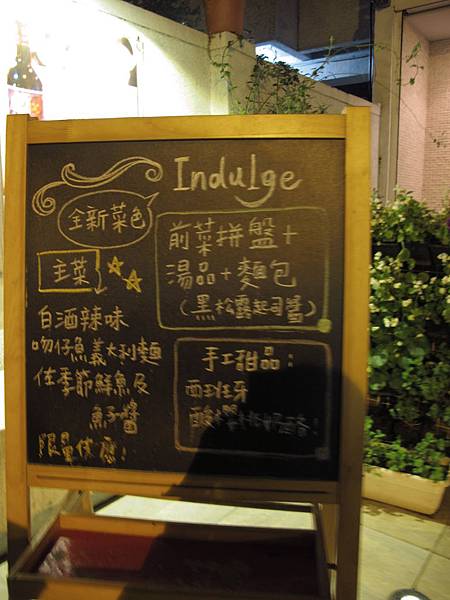 Indulge
全新菜色
前菜拼盤+
湯品+麵包
(黑松露起司醬)
主菜
白酒辣味
吻仔魚義大利麵
佐季節鮮魚及
魚子醬
限量供應!
手工甜品:
西班牙